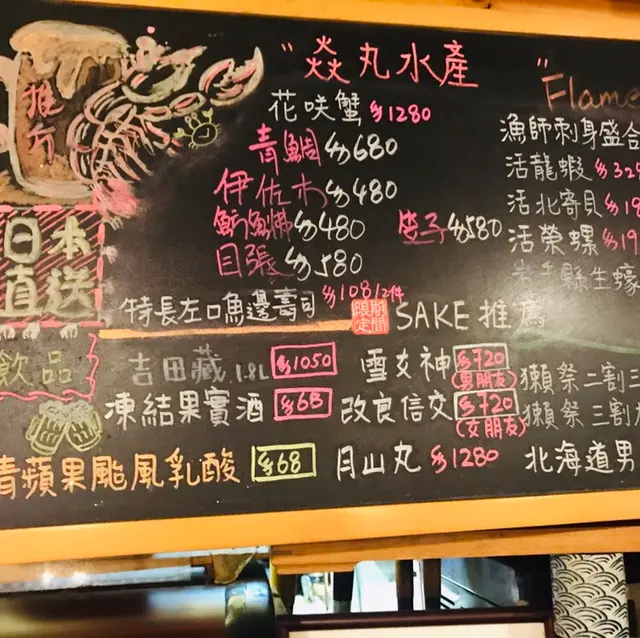 推介
日本
直送
"焱丸水產"
花咲蟹 $1280
青鯛 $680
伊佐木 $480
$480
目張 $580
$580
特長左口魚邊壽司 $108/2件
期間限定
Flame
漁師刺身盛合
活龍蝦 $32
活北寄貝 $19
活榮螺 $19
岩手縣生蠔
SAKE 推
飲品
吉田藏 1.8L $1050
凍結果實酒 $68
青蘋果颱風乳酸 $68
雪女神 $720
(男朋友)
改良信交 $720
(女朋友)
月山丸 $1280
獺祭 二割三
獺祭 三割九
北海道男